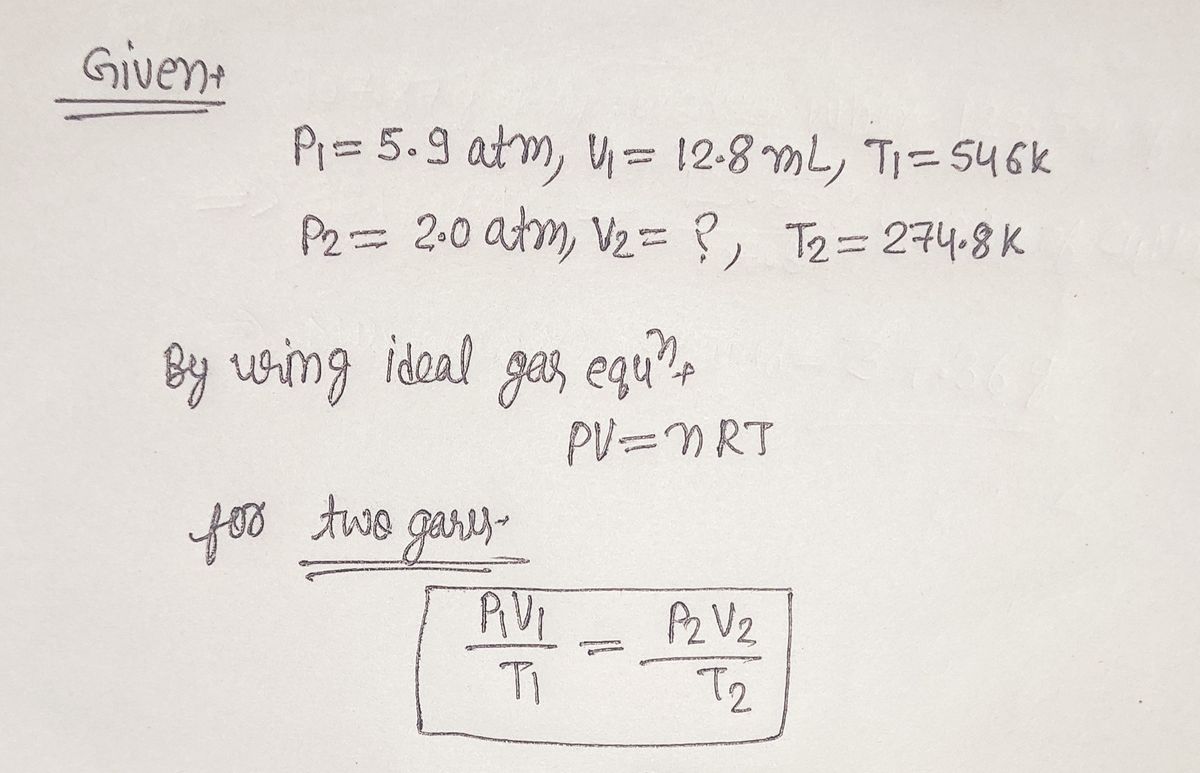 Given
P1 = 5.9 atm, V1 = 12.8 mL, T1 = 546K
P2 = 2.0 atm, V2 = ?, T2 = 274.8 K
By using ideal gas equⁿ
PV = nRT
for two gases-
P1V1/T1 = P2V2/T2